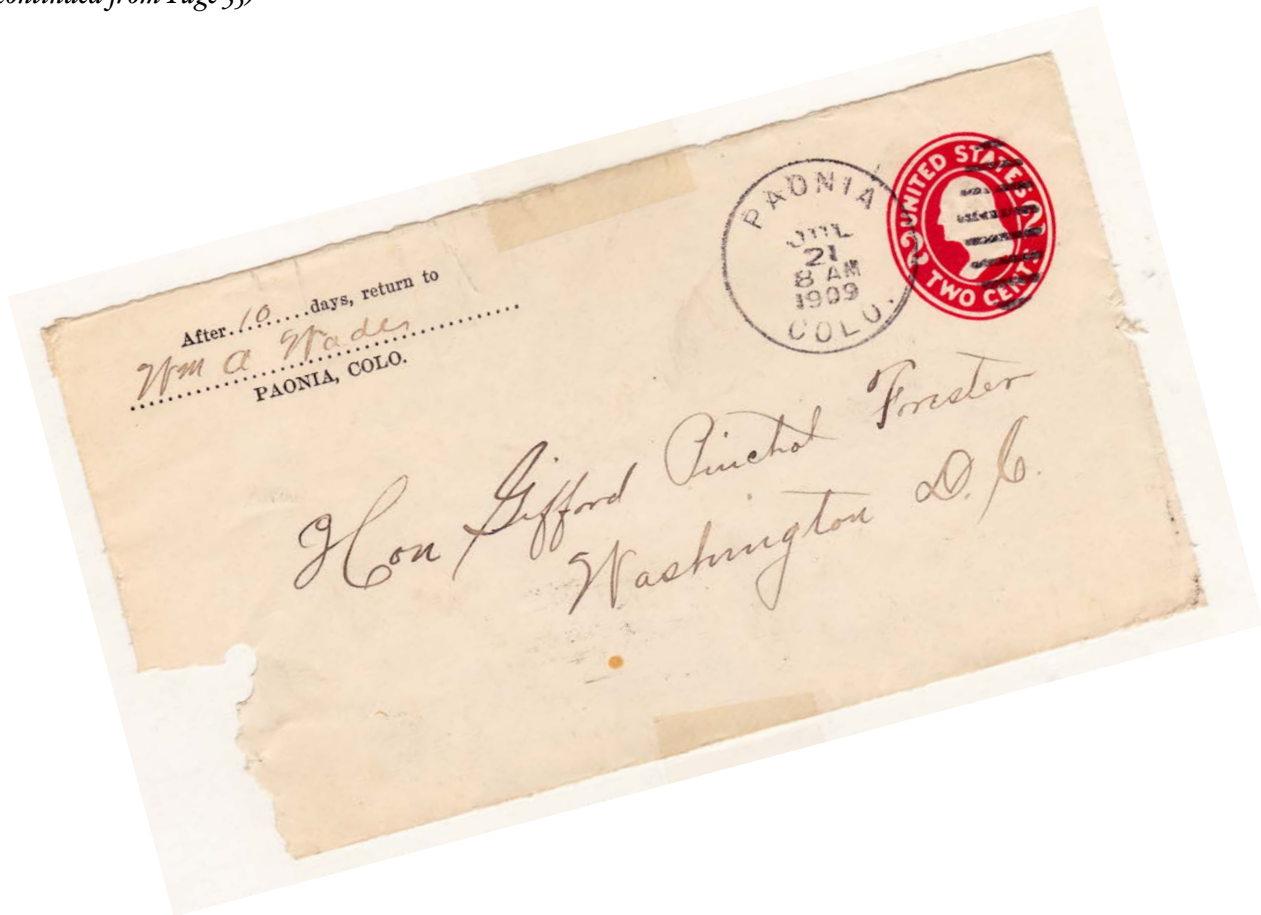 continued from Page 33)
After 10 days, return to
Wm A Wade
PAONIA, COLO.
PAONIA
JUL
21
8 AM
1909
COLO.
UNITED STATES
2 2
TWO CENTS
Hon Gifford Pinchot Forester
Washington D. C.